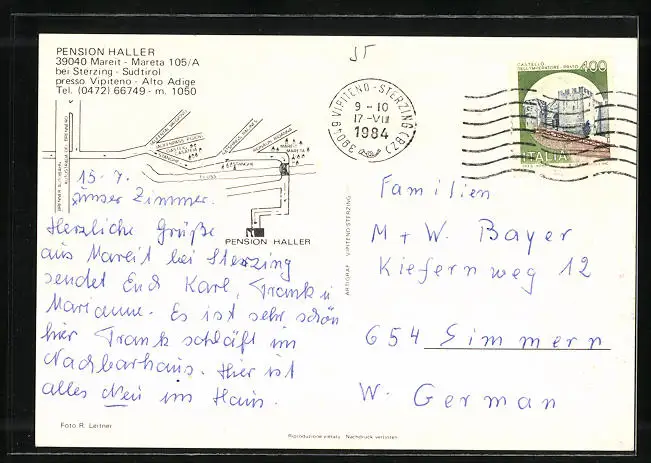 PENSION HALLER
39040 Mareit - Mareta 105/A
bei Sterzing - Südtirol
presso Vipiteno - Alto Adige
Tel. (0472) 66749 - m. 1050
39049 VIPITENO - STERZING (BZ)
9 - 10
17-VII
1984
CASTELLO
DELL'IMPERATORE - PRATO
400
ITALIA
MAREIT
MARETA
FLUSS
PENSION HALLER
15. 7.
Unser Zimmer.
Herzliche Grüße
aus Mareit bei Sterzing
sendet Euch Karl, Frank u
Marianne. Es ist sehr schön
hier Frank schläft im
Nachbarhaus. Hier ist
alles Neu im Haus.
Foto R. Leitner
ARTIGRAF VIPITENO/STERZING
Familien
M + W. Bayer
Kiefernweg 12
654 Simmern
W. German
Riproduzione vietata Nachdruck verboten